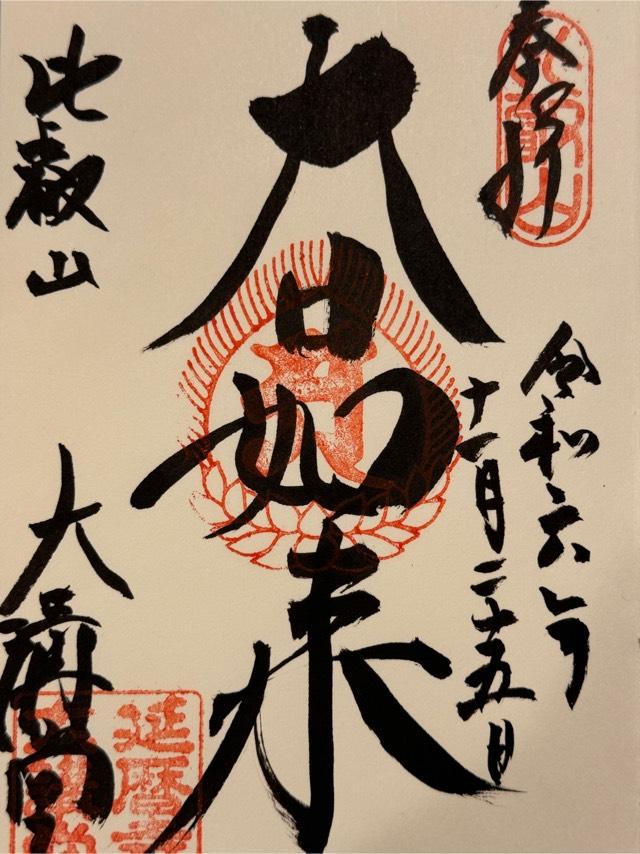 奉拝
令和六年
十一月二十五日
大日如来
比叡山
大講堂
比叡山
延暦寺